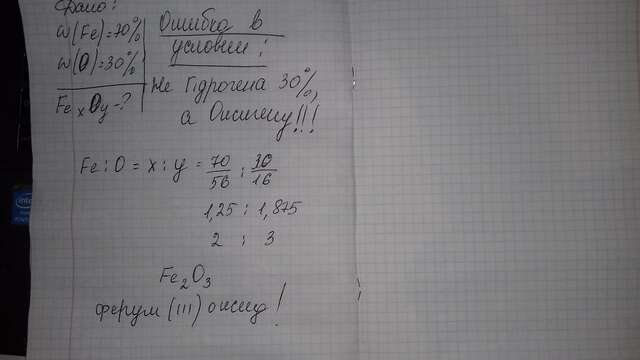 Дано:
w(Fe)=70%
w(O)=30%
FexOy-?
Ошибка в
условии:
Не Гідрогена 30%,
а Оксигену!!!
Fe:O = x:y = 70/56 : 30/16
1,25 : 1,875
2 : 3
Fe2O3
ферум (III) оксид!
intel